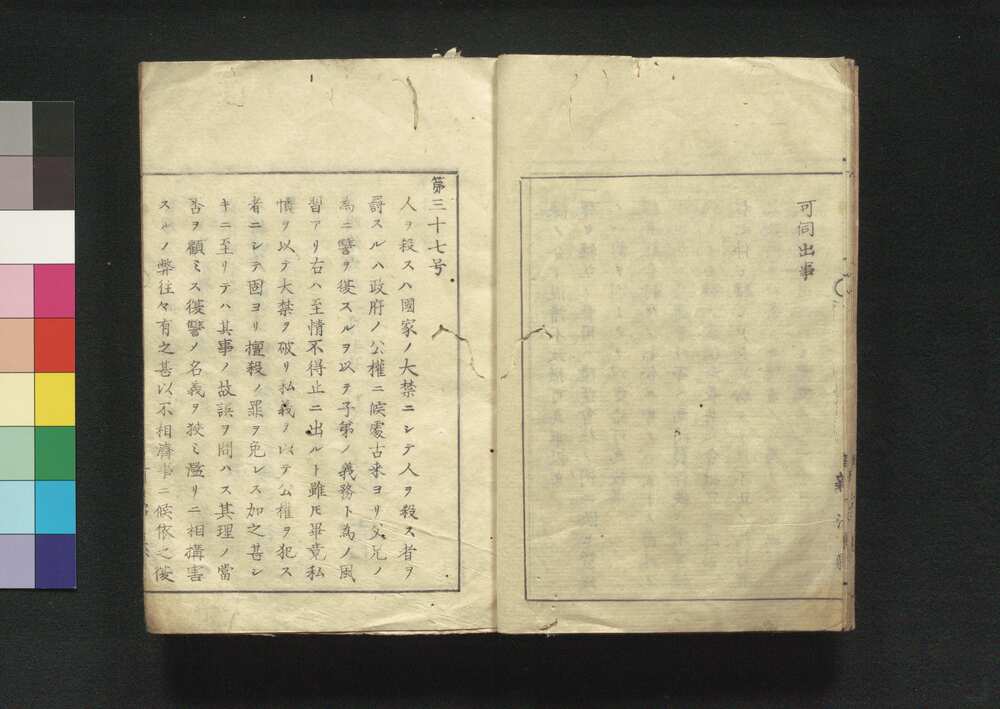 可伺出事
第三十七号
人ヲ殺スハ國家ノ大禁ニシテ人ヲ殺ス者ヲ
罸スルハ政府ノ公權ニ候處古来ヨリ父兄ノ
為ニ讐ヲ復スルヲ以テ子弟ノ義務ト為ノ風
習アリ右ハ至情不得止ニ出ルト雖𪜈畢竟私
憤ヲ以テ大禁ヲ破リ私義ヲ以テ公權ヲ犯ス
者ニシテ固ヨリ擅殺ノ罪ヲ免レス加之甚シ
キニ至リテハ其事ノ故誤ヲ問ハス其理ノ當
否ヲ顧ミス復讐ノ名義ヲ狹ミ濫リニ相搆害
スルノ弊往々有之甚以不相濟事ニ候依之復